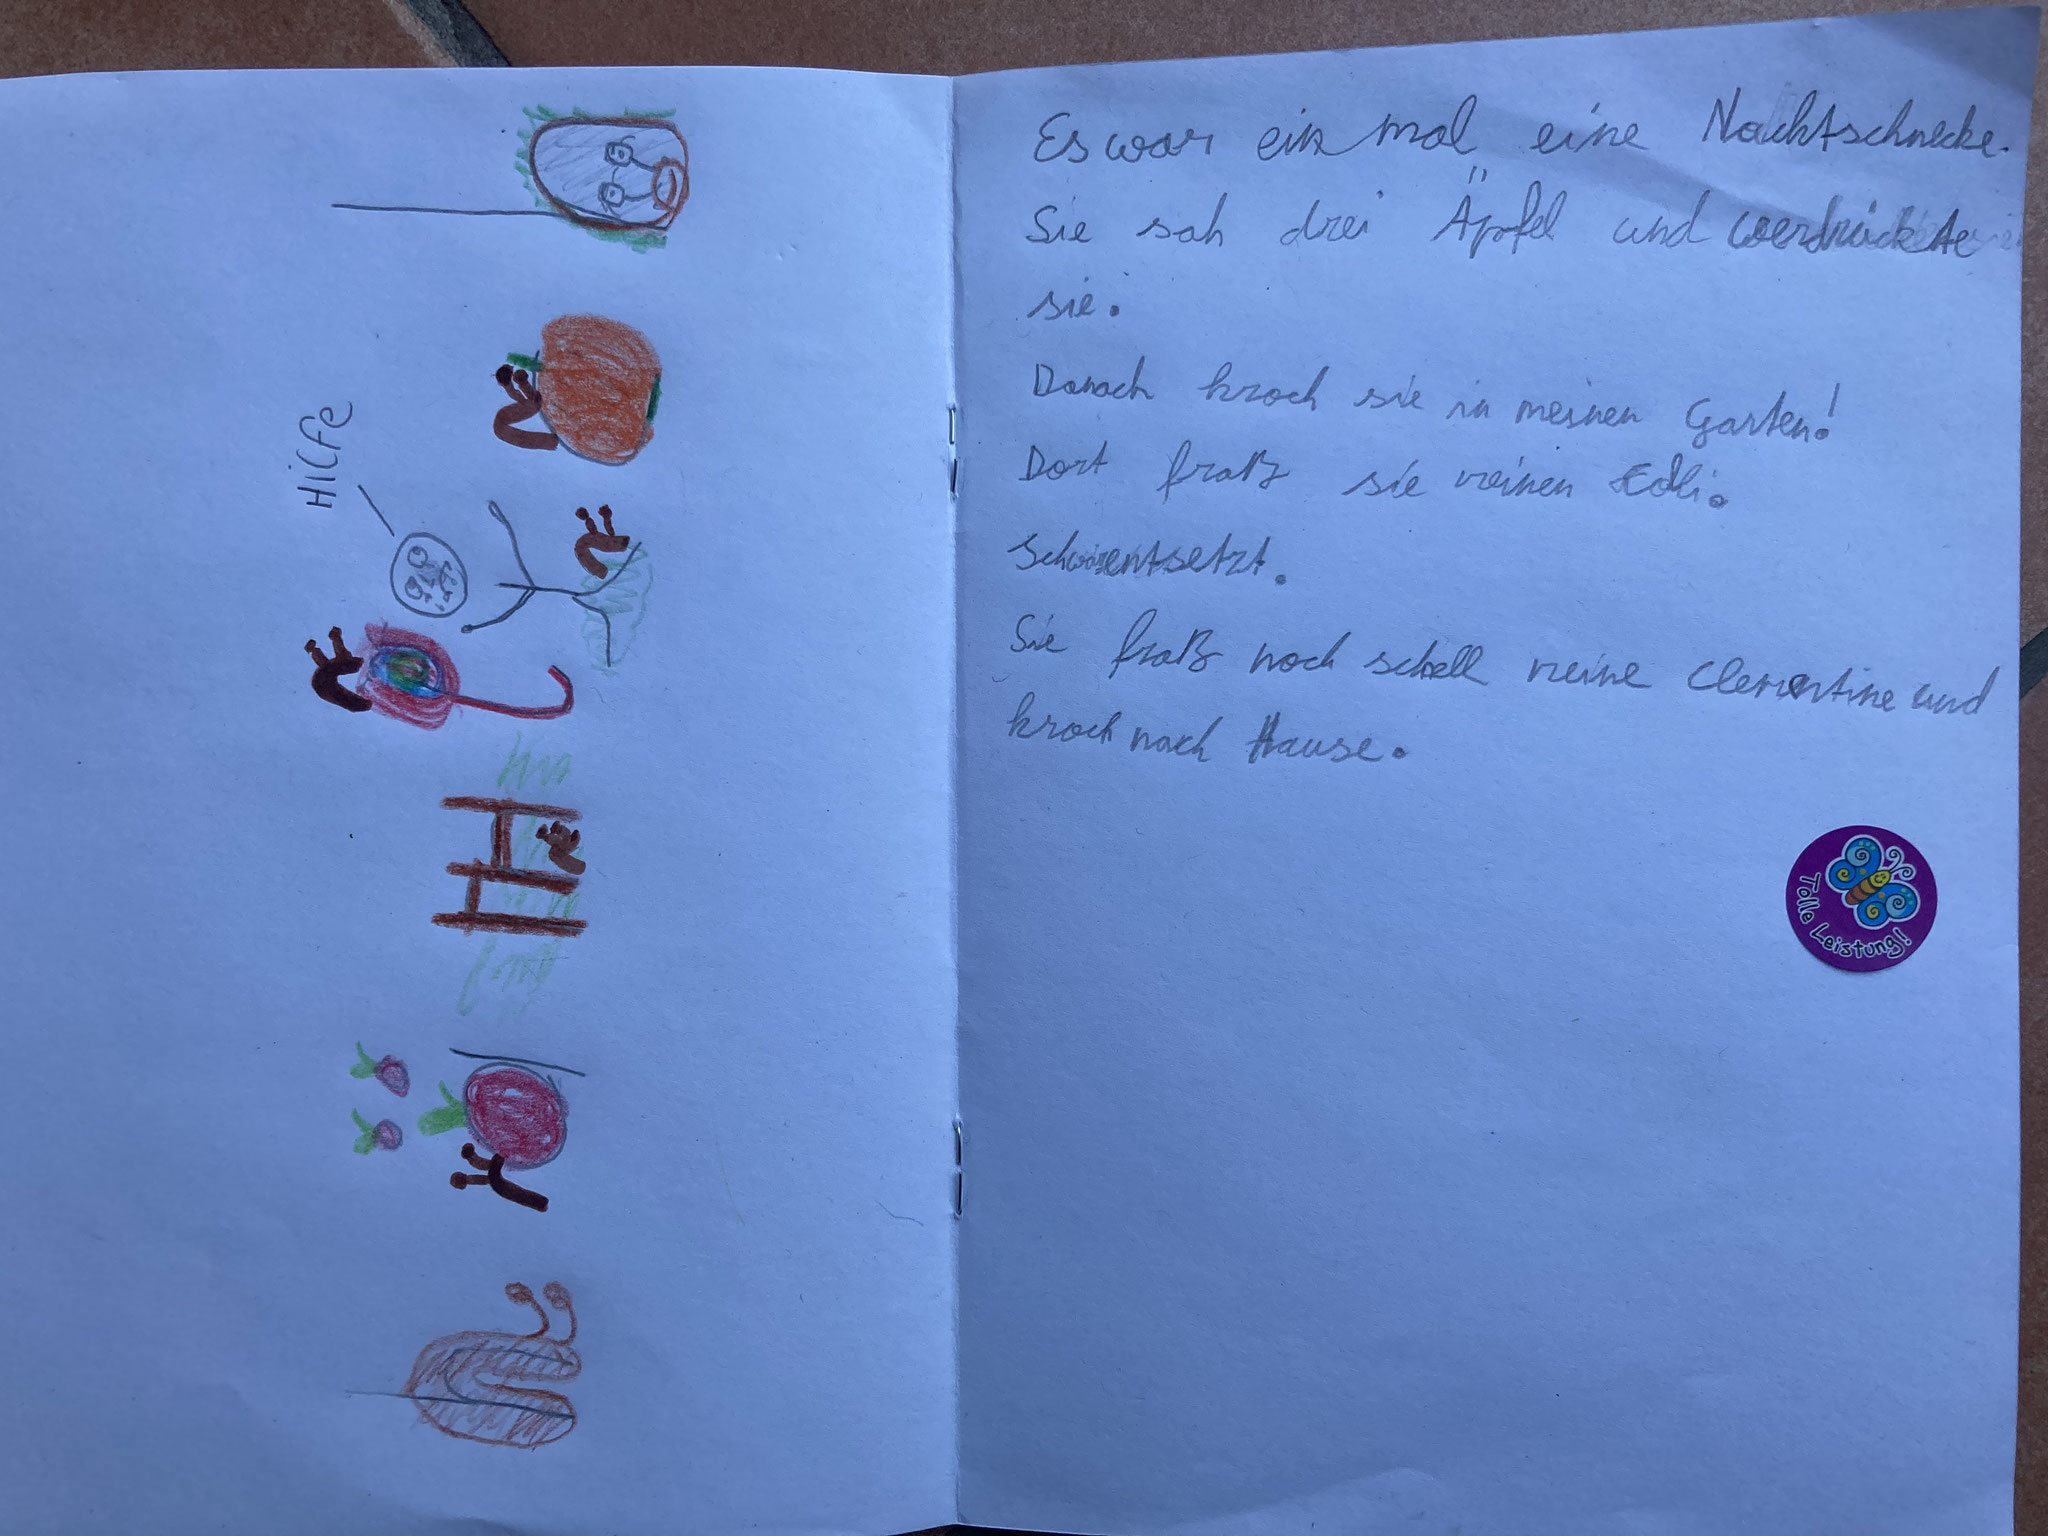 Hilfe
Es war ein mal eine Nachtschnecke.
Sie sah drei Äpfel und werdrückte
sie.
Danach kroch sie in meinen Garten!
Dort fraß sie meinen
entsetzt.
Sie fraß noch schell meine Clementine und
kroch nach Hause.
Tolle Leistung!